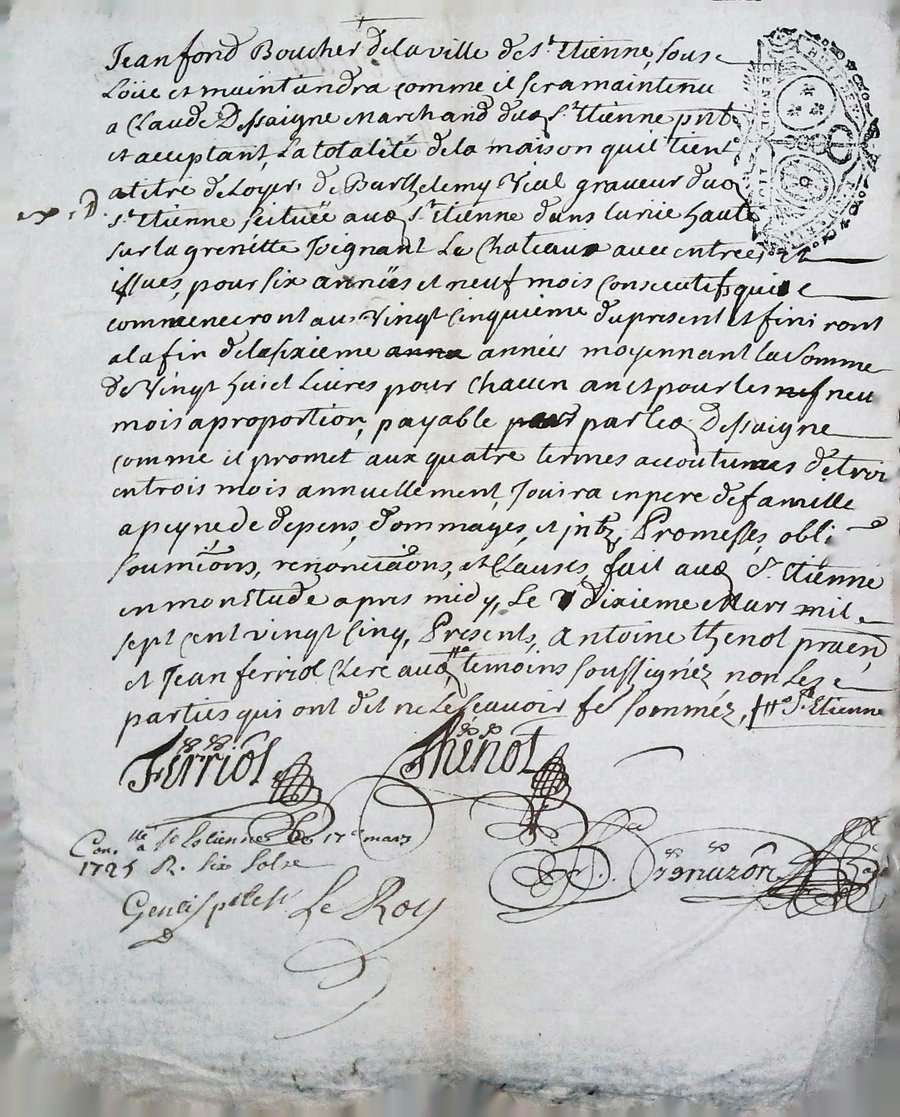 Jean fond Boucher de la ville de St. Etienne, sous
Loüe et maintiendra comme il sera maintenu
a Claude Dessaigne Marchand dud St. Etienne pnt
et acceptant, La totalité de la maison quil tient
a titre de Loyer, de Barthelemy Vial graveur dud
St. Etienne scituée aud St. Etienne dans la rüe haute
sur la grenette Joignant Le Chateaux avec entrées et
issues, pour six années et neuf mois Consecutifs qui
commenceront au Vingt Cinquieme du present et finiront
a la fin de la sixieme anne année moyennant la somme
de Vingt huict Livres pour Chacun an et pour les nef neu
mois a proportion, payable par led Dessaigne
comme il promet aux quatre termes accoutumes de troi
en trois mois annuellement, Jouira en pere de famille
a peyne de depens, dommages, et jntz, Promesses, obli
soumions, renonciaons, et Clauses, fait aud St. Etienne
en mon Etude apres midy, Le dixieme Mars mil
sept cent vingt Cinq, Presents, Antoine thenot praen,
et Jean ferriol Clerc aud temoins soussignéz non Les
parties qui ont dit ne Le scavoir de ce sommés, St. Etienne
Ferriol Thenot
Con. lle a St Estienne le 17e mars
1725 R. six sols
Le Roy